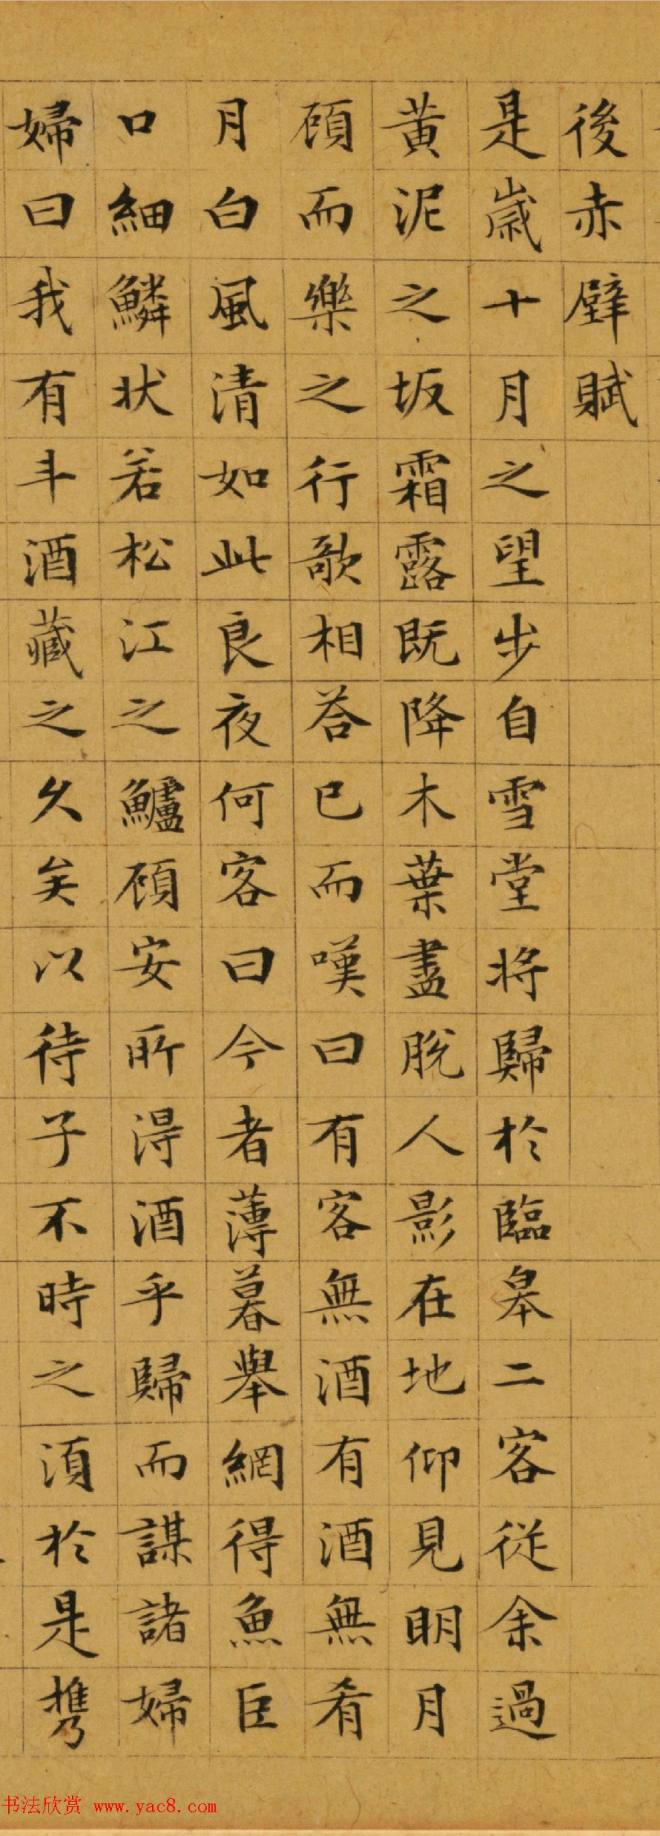 後赤壁賦
是歲十月之望步自雪堂將歸於臨皋二客從余過
黃泥之坂霜露既降木葉盡脫人影在地仰見明月
顧而樂之行歌相荅已而嘆曰有客無酒有酒無肴
月白風清如此良夜何客曰今者薄暮舉網得魚巨
口細鱗狀若松江之鱸顧安所得酒乎歸而謀諸婦
婦曰我有斗酒藏之久矣以待子不時之須於是攜
书法欣赏 www.yac8.com